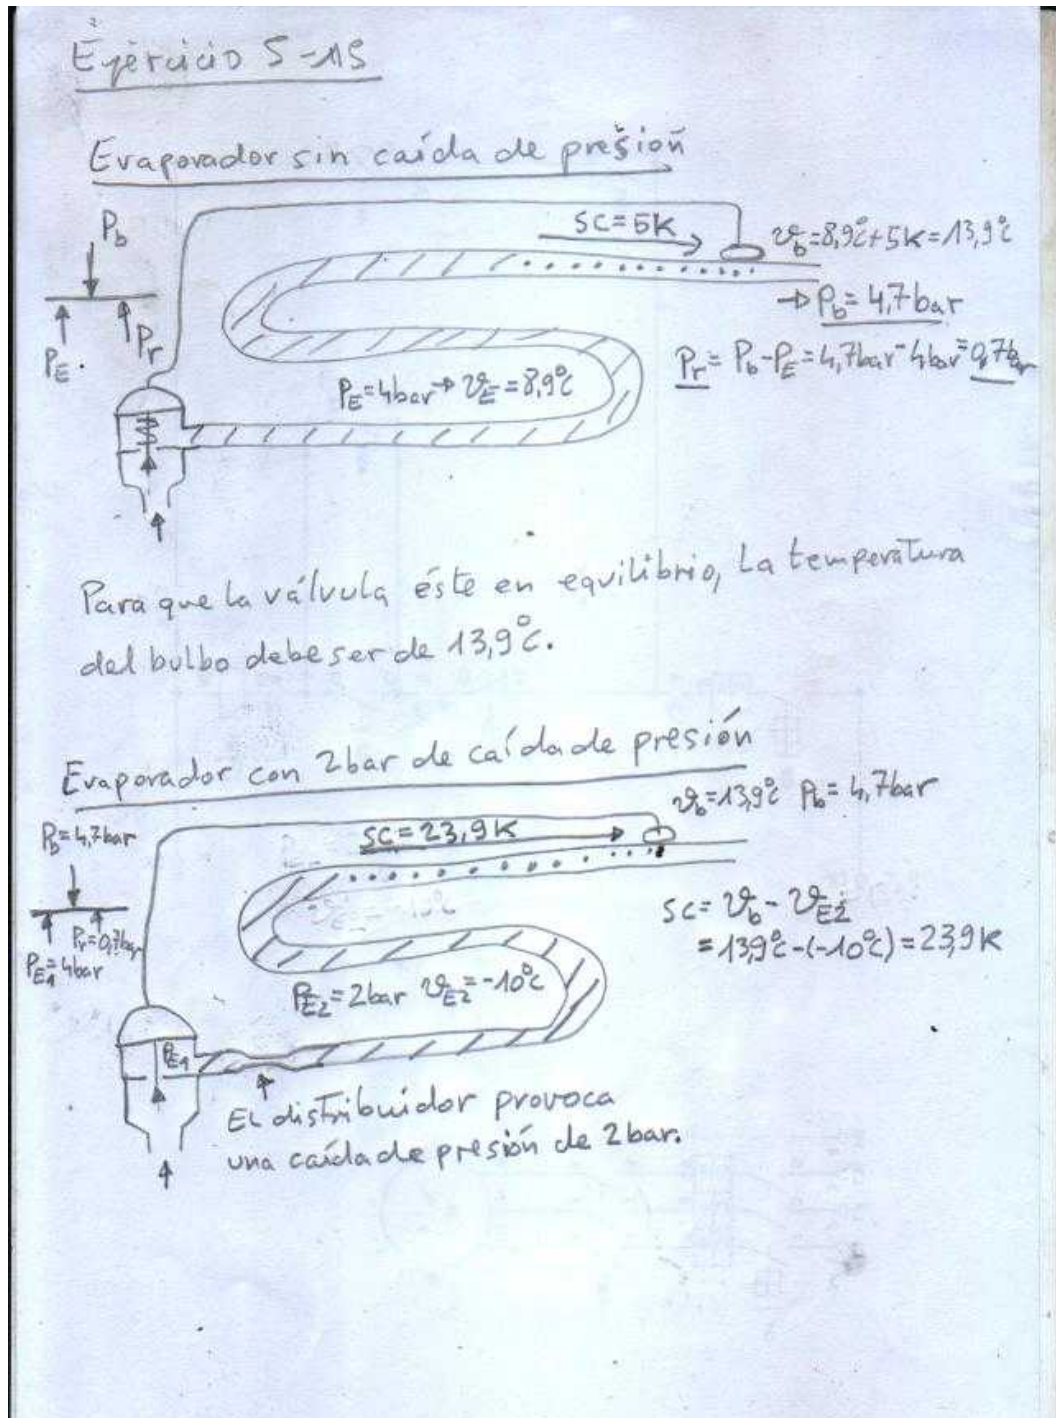 Ejercicio 5-15
Evaporador sin caída de presión
P_b
SC=5K
ϑ_b=8,9°C+5K=13,9°C
→ P_b=4,7bar
P_E
P_r
P_r=P_b-P_E=4,7bar-4bar=0,7bar
P_E=4bar→ϑ_E=8,9°C
Para que la válvula éste en equilibrio, la temperatura
del bulbo debe ser de 13,9°C.
Evaporador con 2bar de caída de presión
ϑ_b=13,9°C P_b=4,7bar
P_b=4,7bar
SC=23,9K
SC=ϑ_b-ϑ_E2
=13,9°C-(-10°C)=23,9K
P_r=0,7bar
P_E1=4bar
P_E2=2bar ϑ_E2=-10°C
P_E1
El distribuidor provoca
una caída de presión de 2bar.